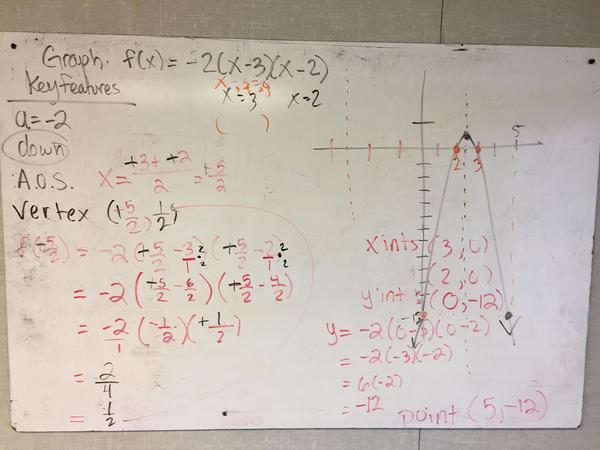 Graph. f(x) = -2(x-3)(x-2)
Key features
x=3 x=2
a = -2
( )
down
A.O.S. x = +3 + +2 / 2 = +5/2
Vertex (+5/2, 1/2)
f(+5/2) = -2(+5/2 - 3/1 ·2/·2)(+5/2 - 2/1 ·2/·2)
= -2(+5/2 - 6/2)(+5/2 - 4/2)
= -2/1(-1/2)(+1/2)
= 2/4
= 1/2
5
2 3
x ints (3, 0)
(2, 0)
y int (0, -12)
-12
y = -2(0-3)(0-2)
= -2(-3)(-2)
= 6(-2)
= -12
point (5, -12)